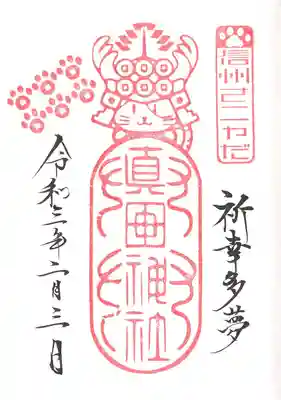 信州さニャだ
祈幸多夢
真田神社
令和三年二月三日